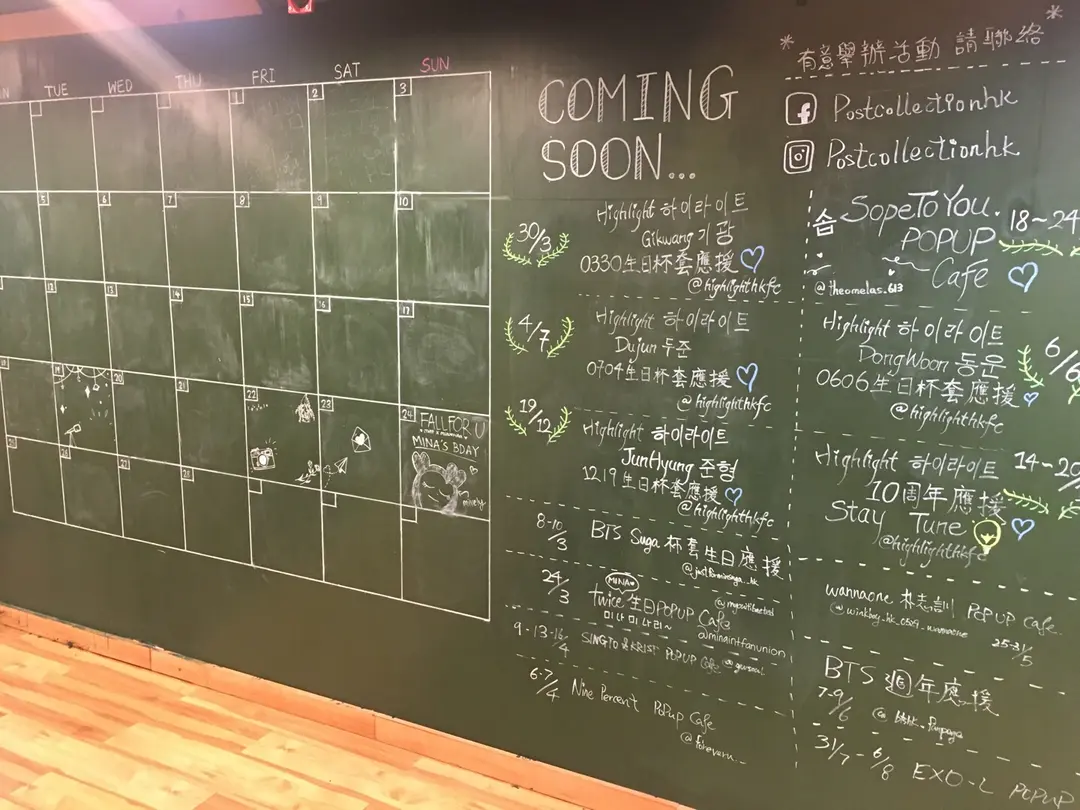 TUE WED THU FRI SAT SUN
1 2 3
5 6 7 8 9 10
12 13 14 15 16 17
19 20 21 22 23 24
FALL FOR U
MINA'S BDAY
26 27 28
COMING
SOON...
30/3
Highlight 하이라이트
Gikwang 기광
0330生日杯套應援
@highlighthkfc
4/7
Highlight 하이라이트
Dujun 두준
0704生日杯套應援
@highlighthkfc
19/12
Highlight 하이라이트
JunHyung 준형
1219生日杯套應援
@highlighthkfc
8-10/3
BTS Suga 杯套生日應援
24/3
MINA
twice 生日POPUP Cafe
미나미나리~
@minaintfanunion
9-13-14/4
SINGTO & KRIST POPUP Cafe
6-7/4
Nine Percent PoPup Cafe
* 有意舉辦活動 請聯絡 *
Postcollectionhk
Postcollectionhk
솝 SopeToYou. 18~24
POPUP
Cafe
@theomelas_613
Highlight 하이라이트
DongWoon 동운
6/6
0606生日杯套應援
@highlighthkfc
Highlight 하이라이트 14~20
10周年應援
Stay Tune
@highlighthkfc
wannaone 朴志訓 POPUP cafe
25-31/5
BTS 6週年應援
7-9/6
31/7-6/8 EXO-L POPUP